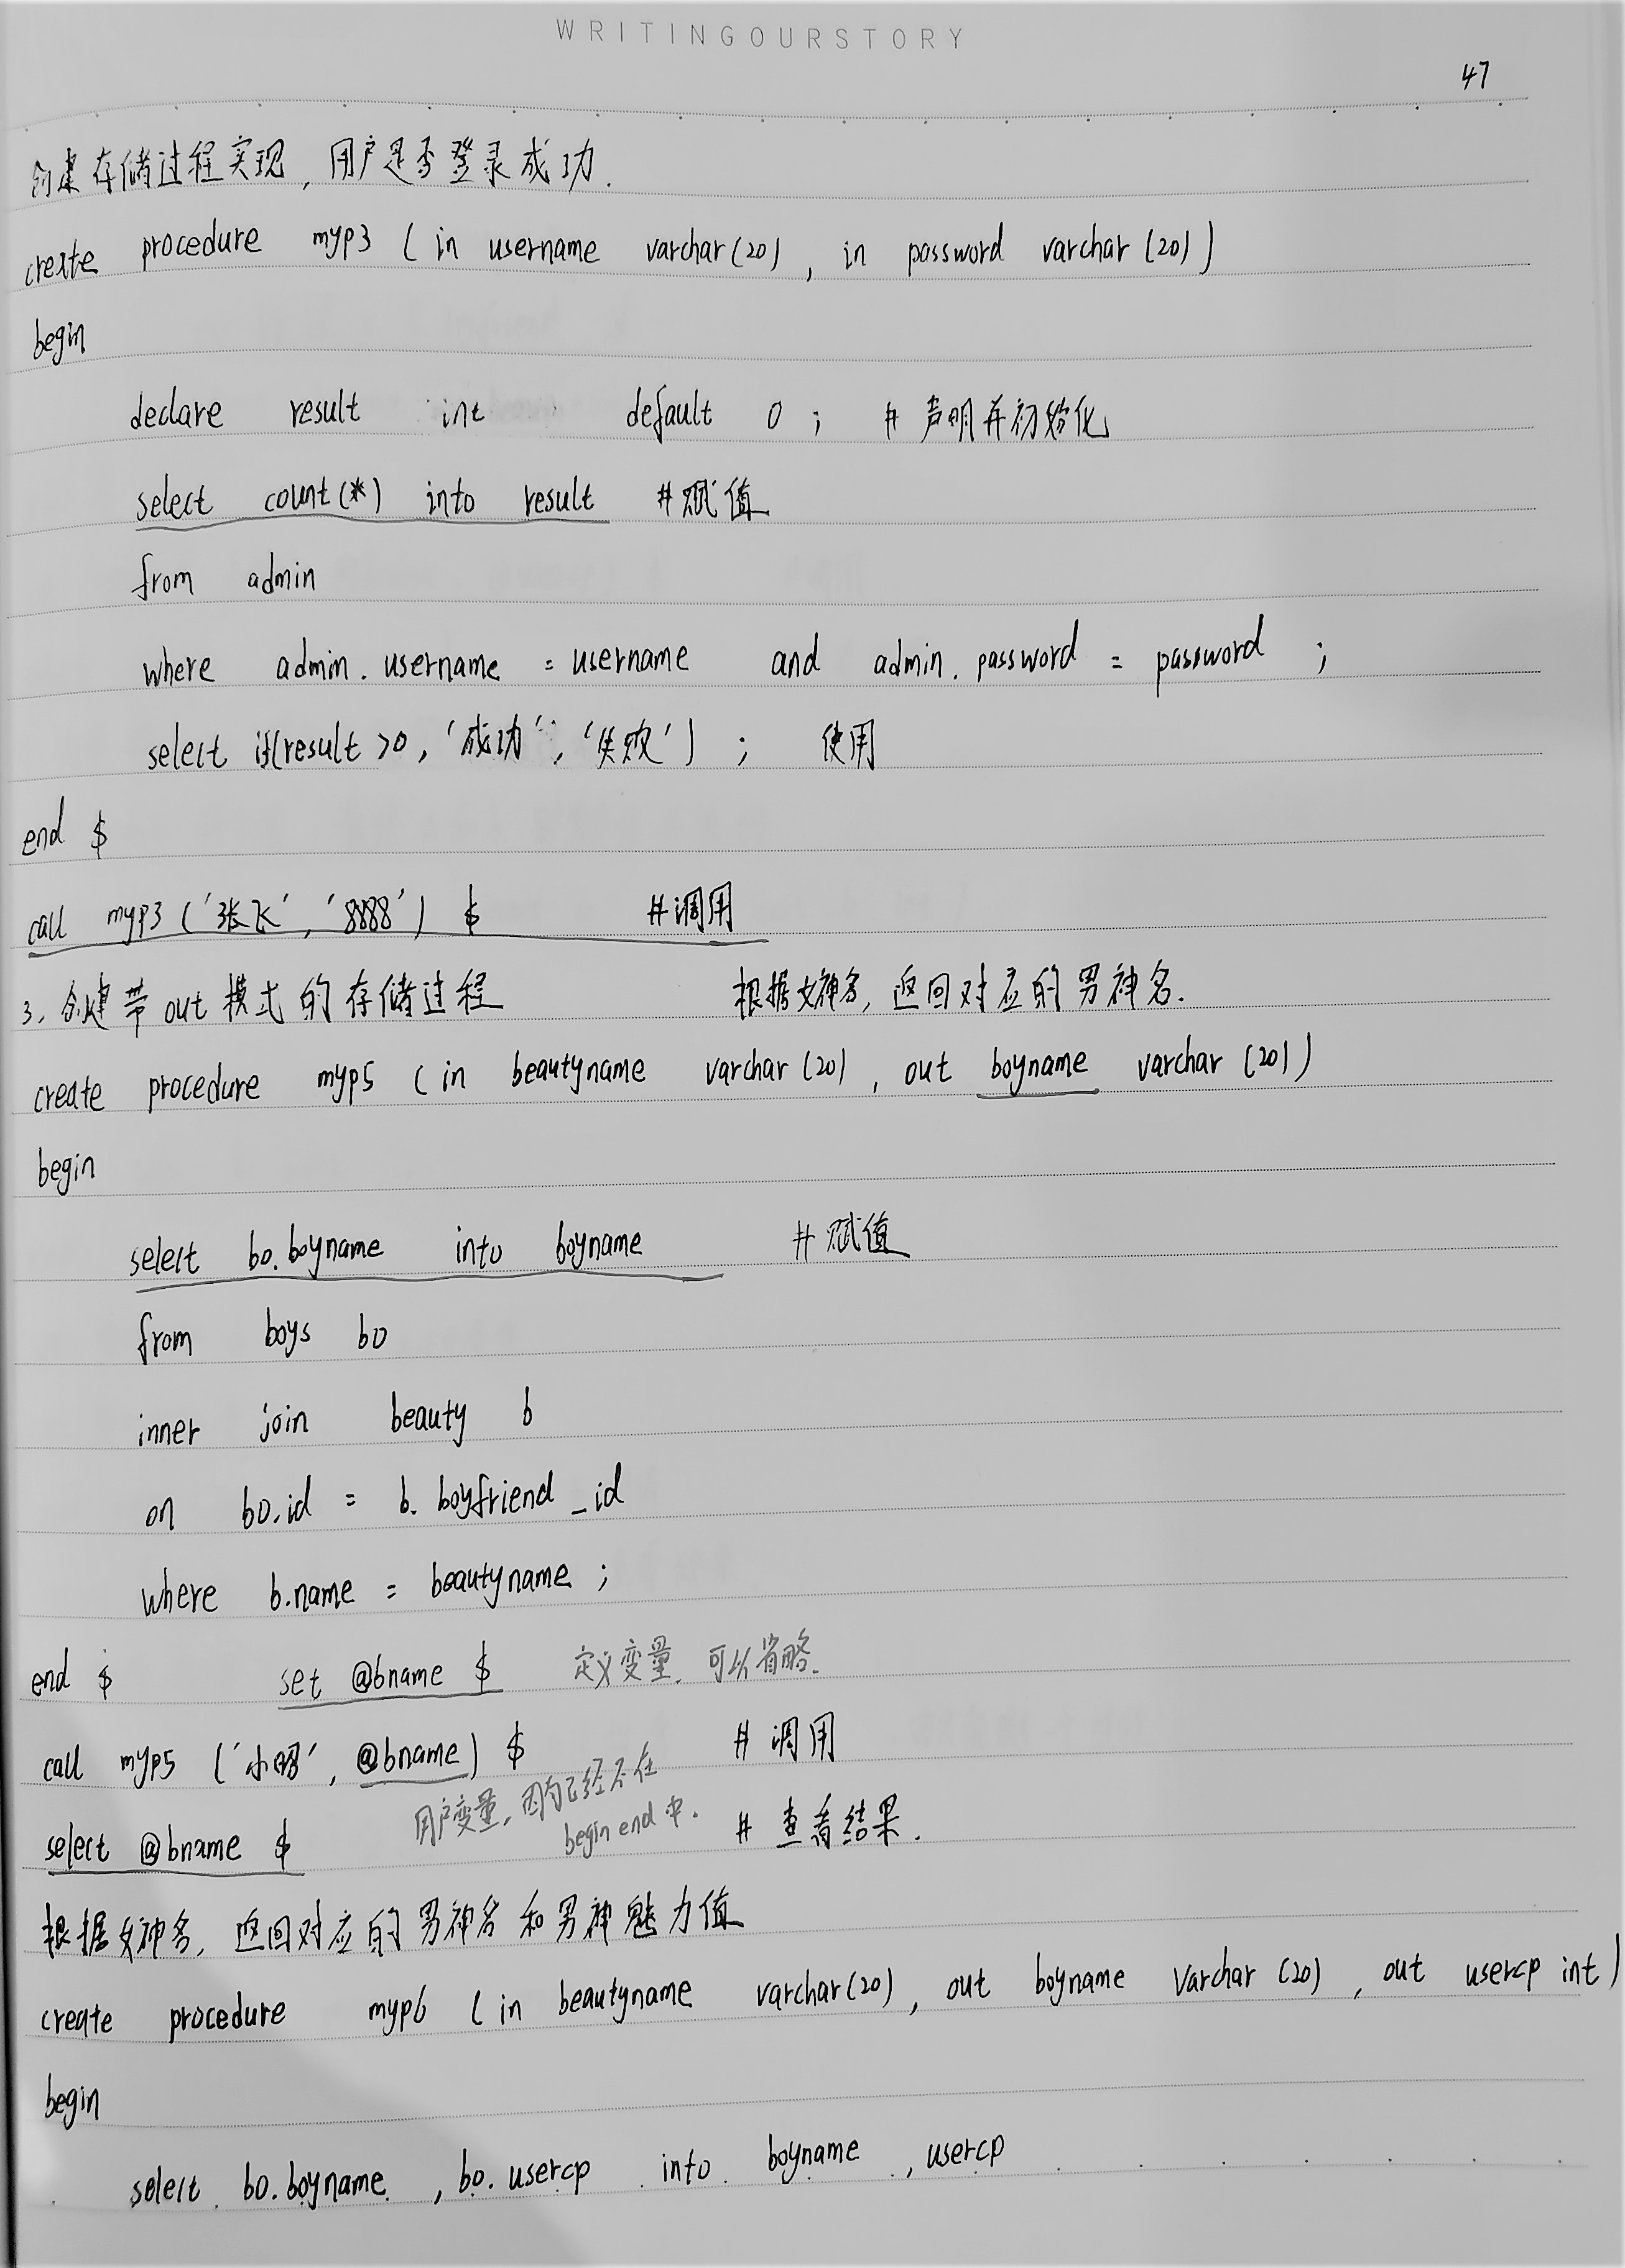 WRITINGOURSTORY
47
创建存储过程实现,用户是否登录成功.
create procedure myp3 (in username varchar(20), in password varchar(20))
begin
declare result int default 0; # 声明并初始化
select count(*) into result #赋值
from admin
where admin.username = username and admin.password = password ;
select if(result >0, '成功', '失败') ; 使用
end $
call myp3 ('张飞', '8888') $ #调用
3. 创建带 out 模式的存储过程 根据女神名, 返回对应的男神名.
create procedure myp5 (in beautyname varchar(20), out boyname varchar(20))
begin
select bo.boyname into boyname # 赋值
from boys bo
inner join beauty b
on bo.id = b.boyfriend_id
where b.name = beautyname ;
end $ set @bname $ 定义变量. 可以省略.
call myp5 ('小昭', @bname) $ # 调用
用户变量, 因为已经不在
begin end 中.
select @bname $ # 查看结果.
根据女神名, 返回对应的男神名和男神魅力值
create procedure myp6 (in beautyname varchar(20), out boyname varchar(20), out usercp int)
begin
select bo.boyname, bo.usercp into boyname, usercp